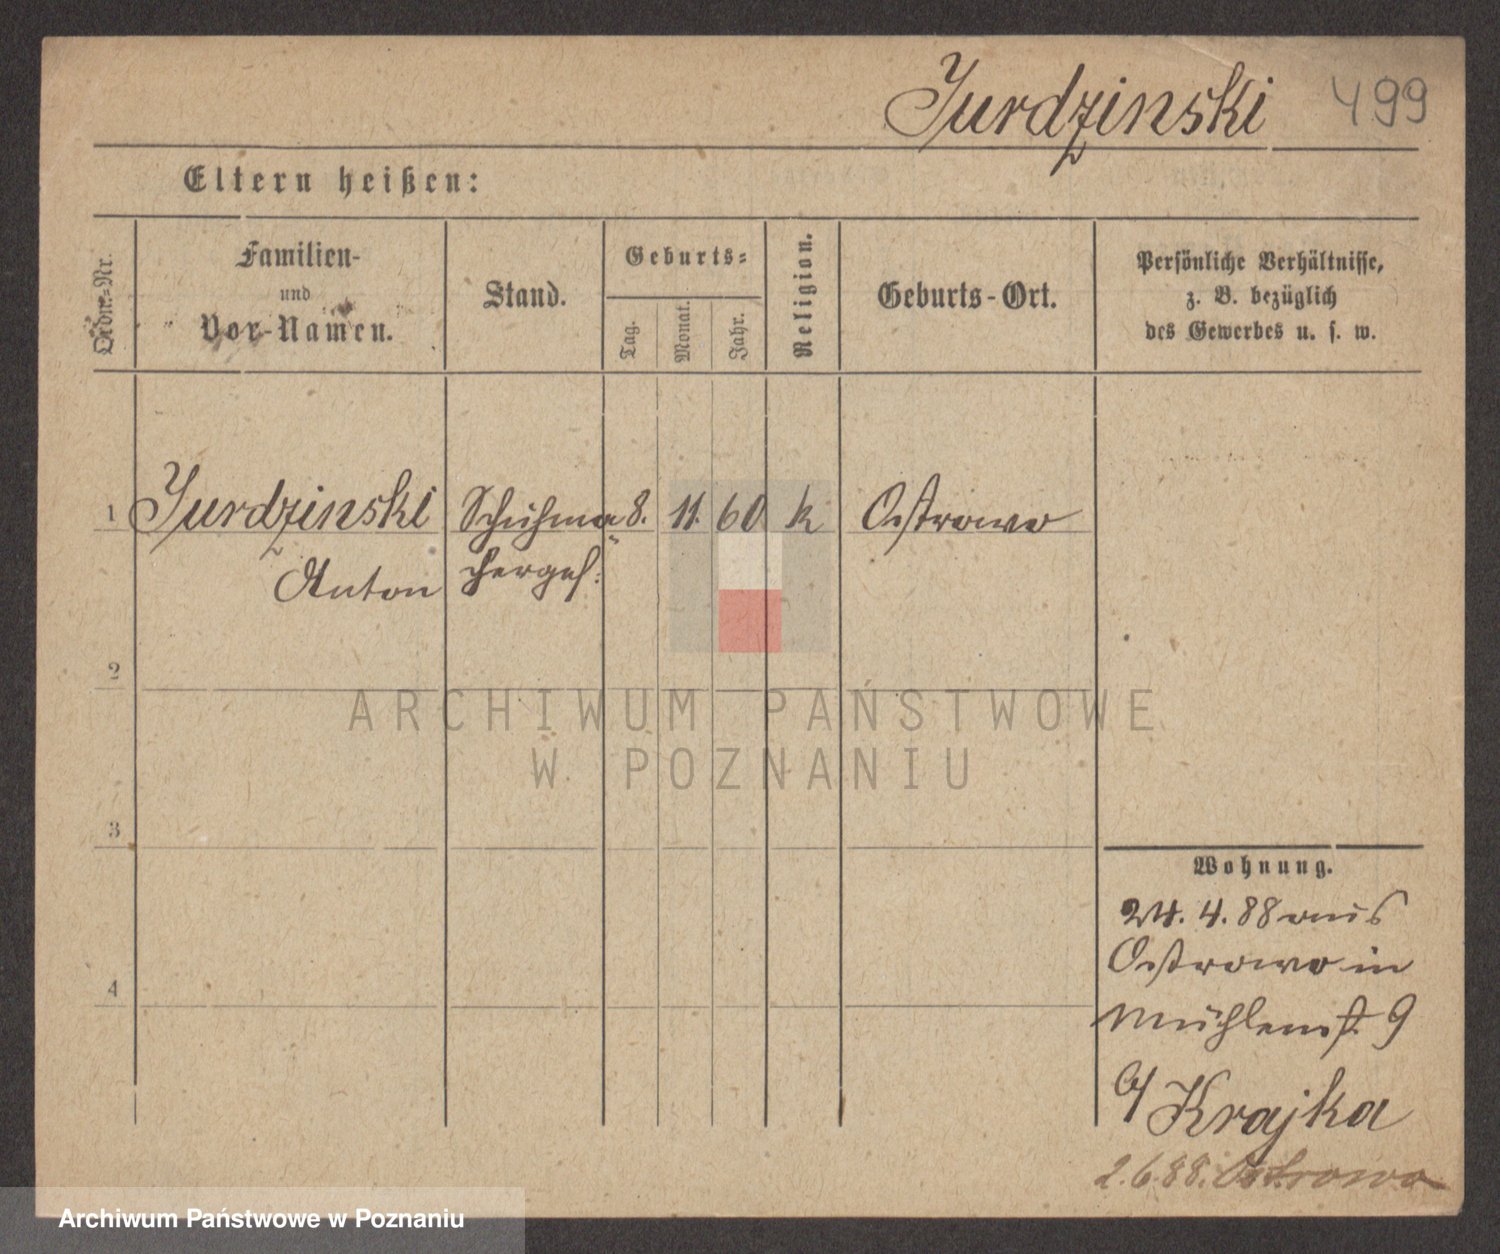 Jurdzinski 499
Eltern heißen:
Ordn.-Nr.
Familien-
und
Vor-Namen.
Stand.
Geburts-
Tag.
Monat.
Jahr.
Religion.
Geburts-Ort.
Persönliche Verhältnisse,
z. B. bezüglich
des Gewerbes u. s. w.
1 Jurdzinski Schuhma 8. 11. 60 k Ostrowo
Anton cherges:
2
ARCHIWUM PAŃSTWOWE
W POZNANIU
3
Wohnung.
24. 4. 88 aus
Ostrowo in
Mühlenst. 9
Krajka
4
2.6.88. Ostrowo
Archiwum Państwowe w Poznaniu